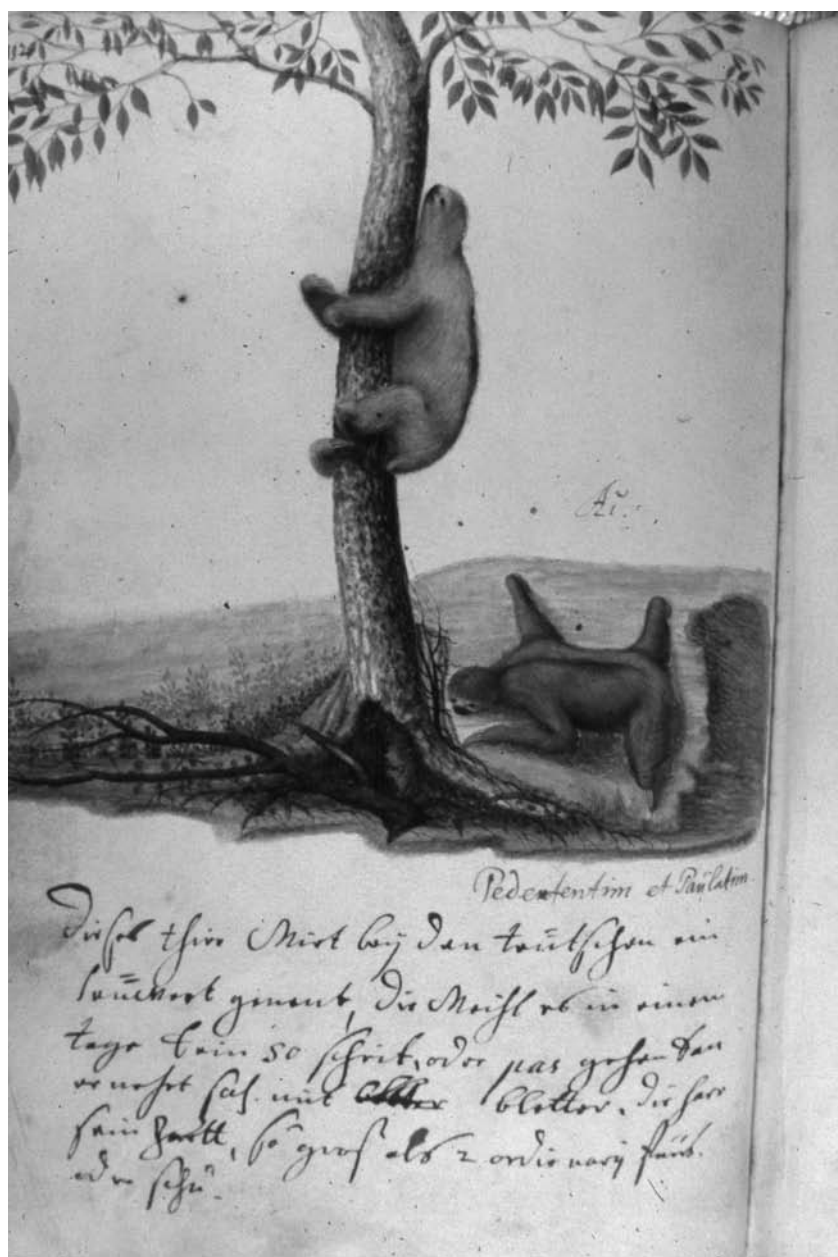 Ai:
Pedetentim et Paulatim.
Dieses thier Wirt beÿ den teütschen ein
genent, die Weihl es in einen
tage kein 50 schrit, oder pas gehen kan
er nehrt sich mit bletter, die har
sein zartt, so gros als 2 ordienarÿ füs.
oder schu.